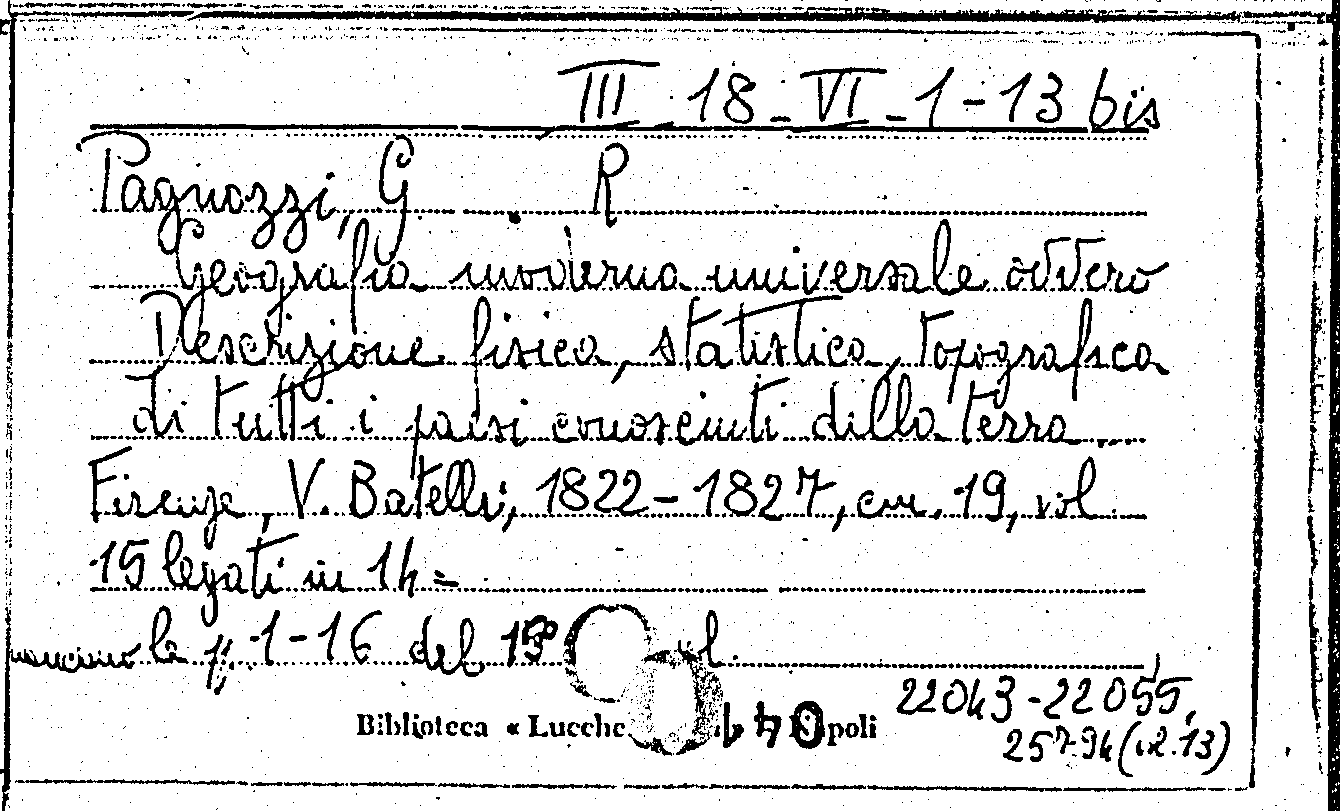 III - 18 - VI - 1 - 13 bis
Pagnozzi, G . R
Geografia moderna universale ovvero
Descrizione fisica, statistica, topografica
di tutti i paesi conosciuti della terra
Firenze, V. Batelli, 1822 - 1827, cm. 19, vol.
15 legati in 14 =
mancano le pp. 1-16 del 13º vol.
22043 - 22055,
Biblioteca « Lucche poli
25794 (v. 13)